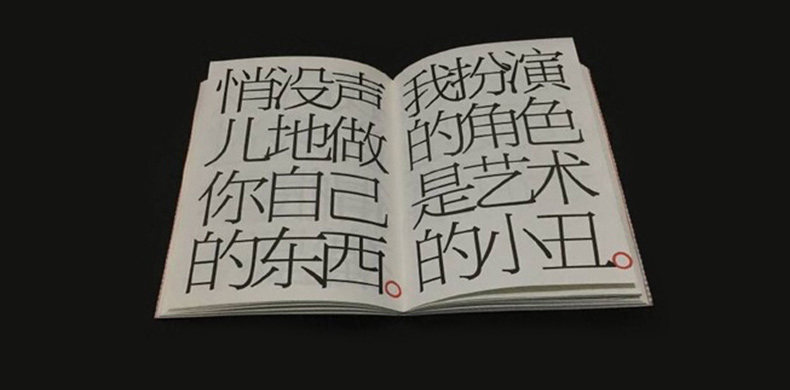 悄没声
儿地做
你自己
的东西。
我扮演
的角色
是艺术
的小丑。